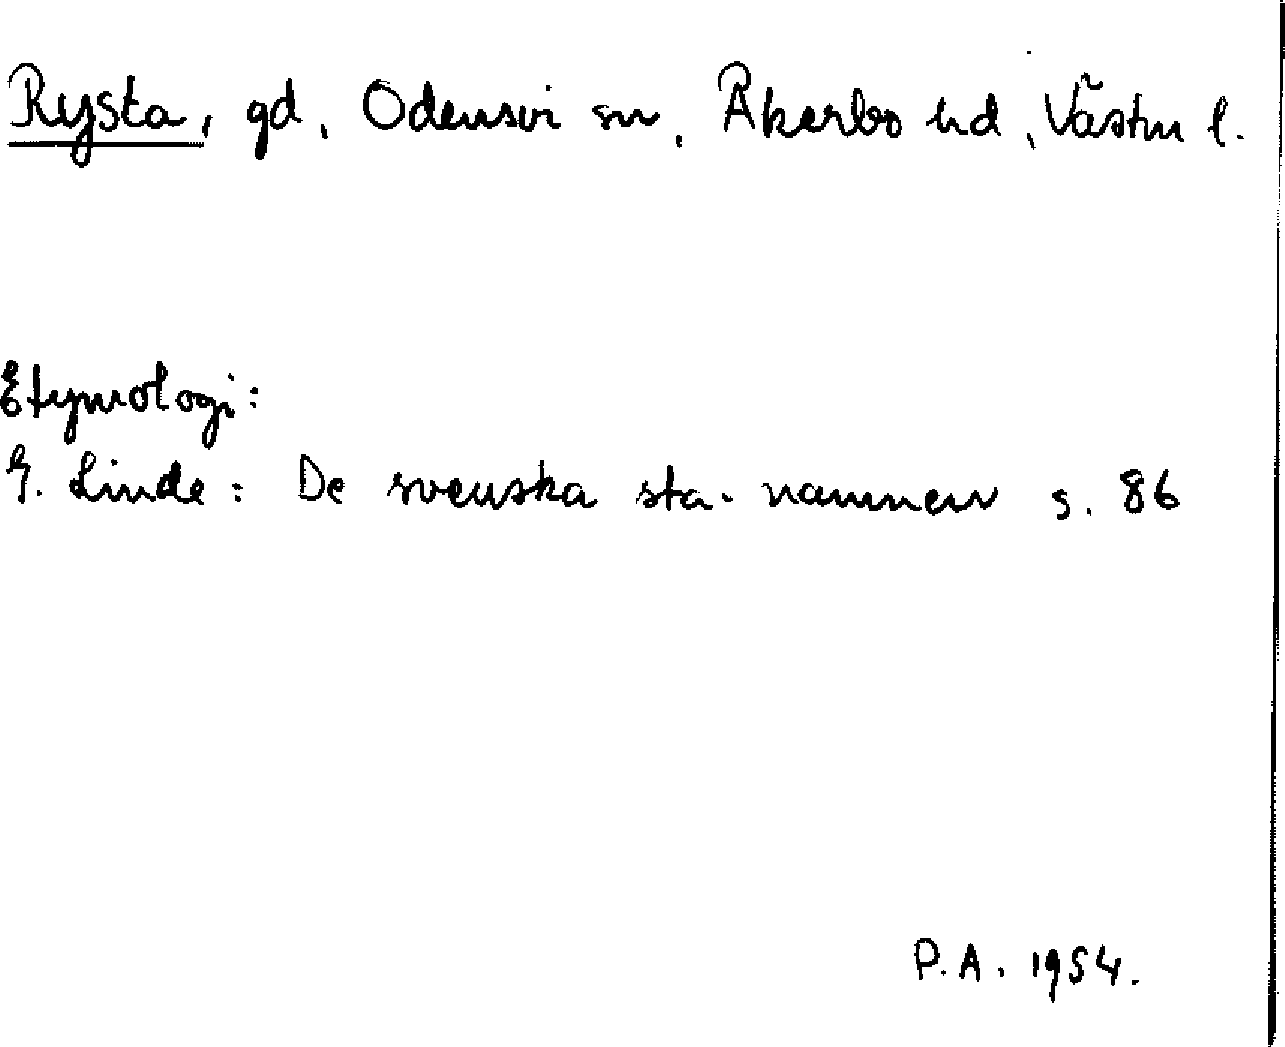 Rysta, gd, Odensvi sn, Åkerbo hd, Västm l.
Etymologi:
G. Linde: De svenska sta-namnen s. 86
P.A. 1954.